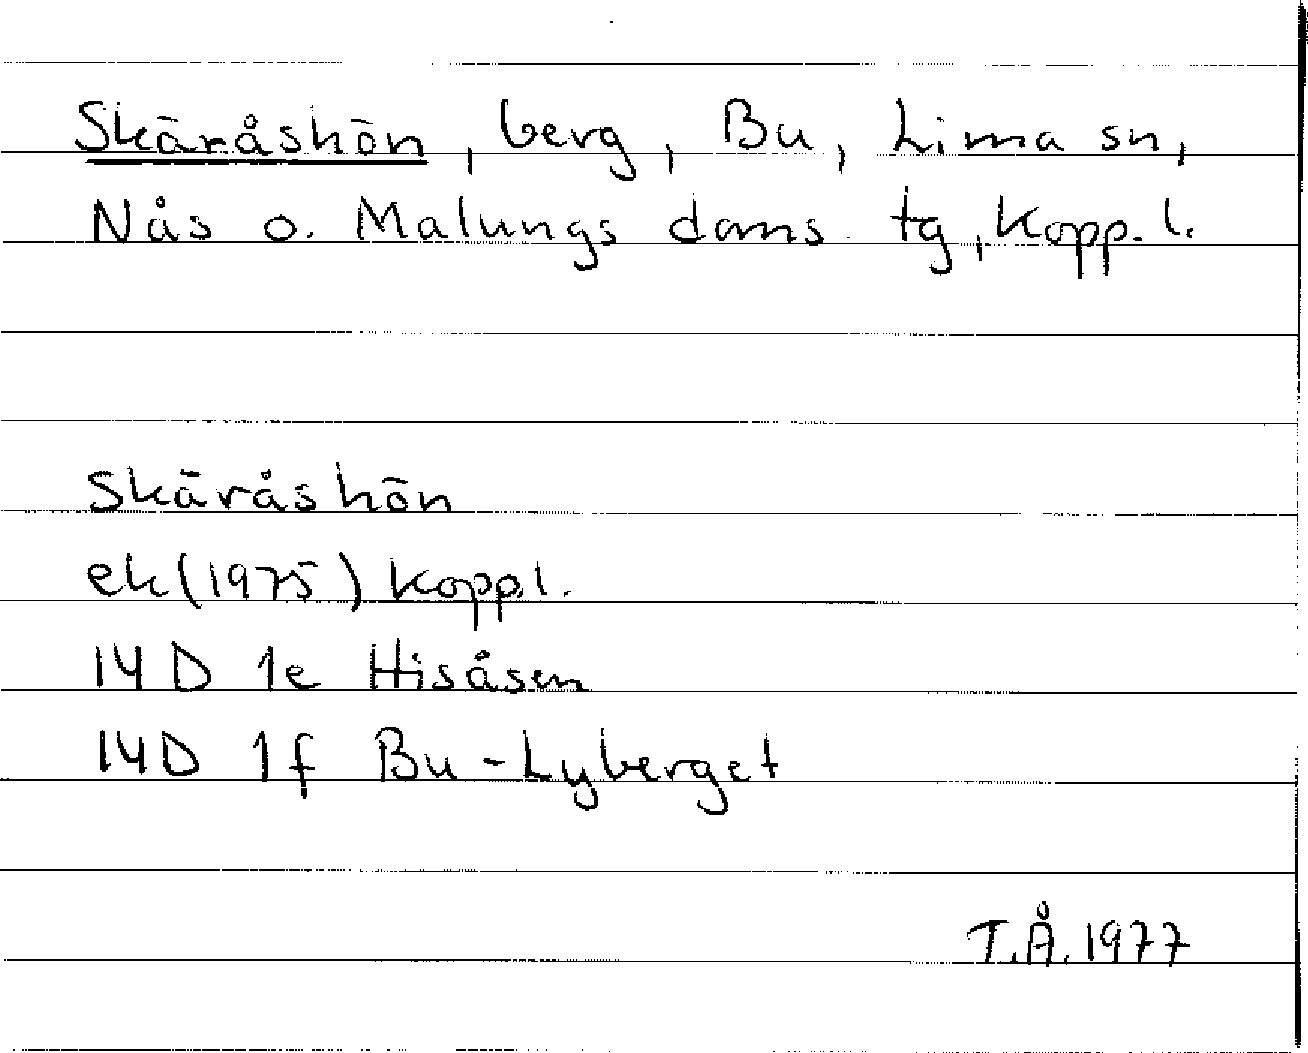 Skäråshön, berg, Bu, Lima sn,
Nås o. Malungs doms. tg, Kopp. l.
Skäråshön
ek (1975) Kopp.l.
14 D 1e Hisåsen
14D 1f Bu-Lyberget
T.Å. 1977